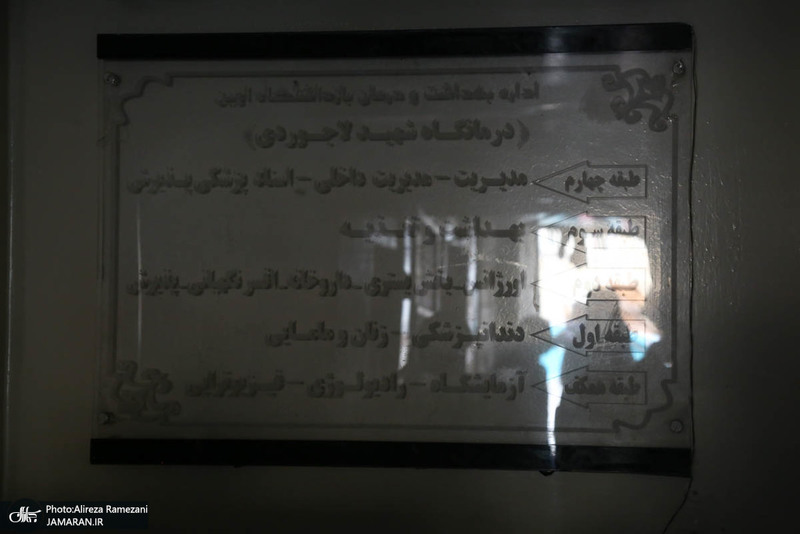 اداره بهداشت و درمان بازداشتگاه اوین
(درمانگاه شهید لاجوردی)
طبقه چهارم مدیریت - مدیریت داخلی - اسناد پزشکی پذیرش
طبقه سوم بهداشت و تغذیه
طبقه دوم اورژانس_بخش بستری_داروخانه_افسر نگهبانی_پذیرش
طبقه اول دندانپزشکی - زنان و مامایی
طبقه همکف آزمایشگاه - رادیولوژی - فیزیوتراپی
جماران
Photo:Alireza Ramezani
JAMARAN.IR